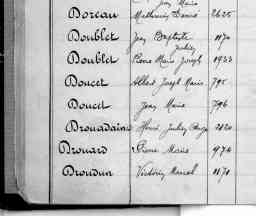 Jean Marie
Doreau Mathurin Daniel 2625
Doublet Jean Baptiste 1170
Julien
Doublet Pierre Marie Joseph 1933
Doucet Albert Joseph Marie 795
Doucet Jean Marie 796
Drouadaine Henri Julien 2120
Drouard Pierre Marie 974
Droudun Victorin Marcel 1171